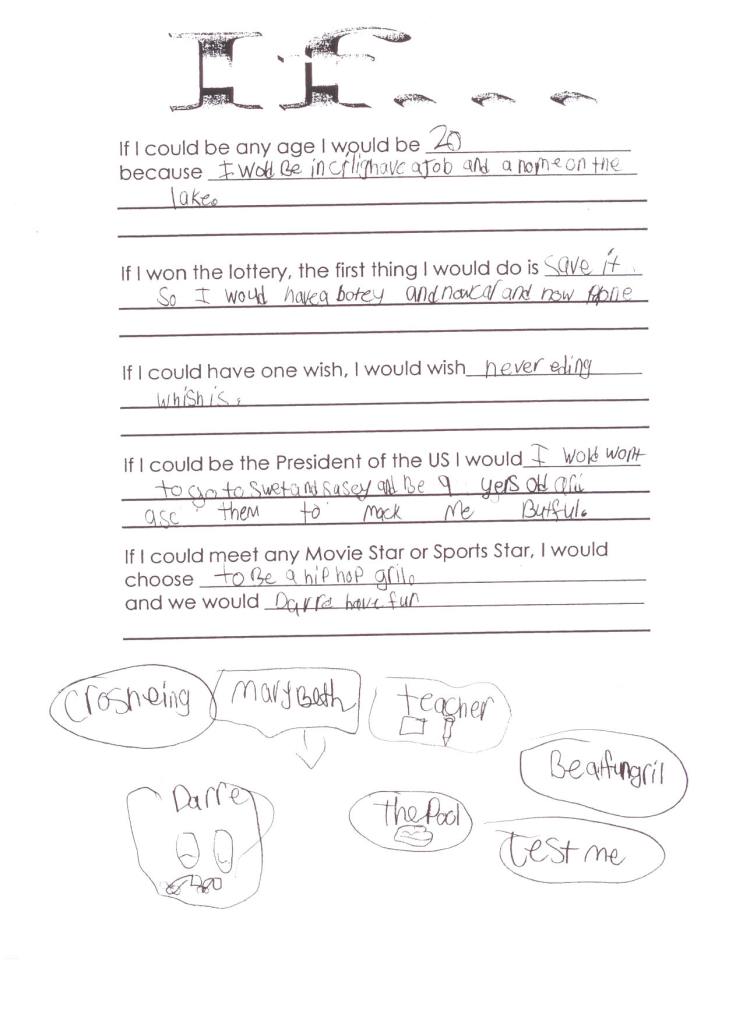 If...
If I could be any age I would be 20
because I Wold Be in have a Job and a home on the
lake.
If I won the lottery, the first thing I would do is save it.
So I would have a and now and now
If I could have one wish, I would wish never eding
whish is.
If I could be the President of the US I would I wold wont
to go to and and Be 9 yers old
asc them to mack me Butful.
If I could meet any Movie Star or Sports Star, I would
choose to Be a hip hop gril.
and we would Darre have fun
crosheing mary Beath teacher
Be a fun gril
Darre the Pool
test me